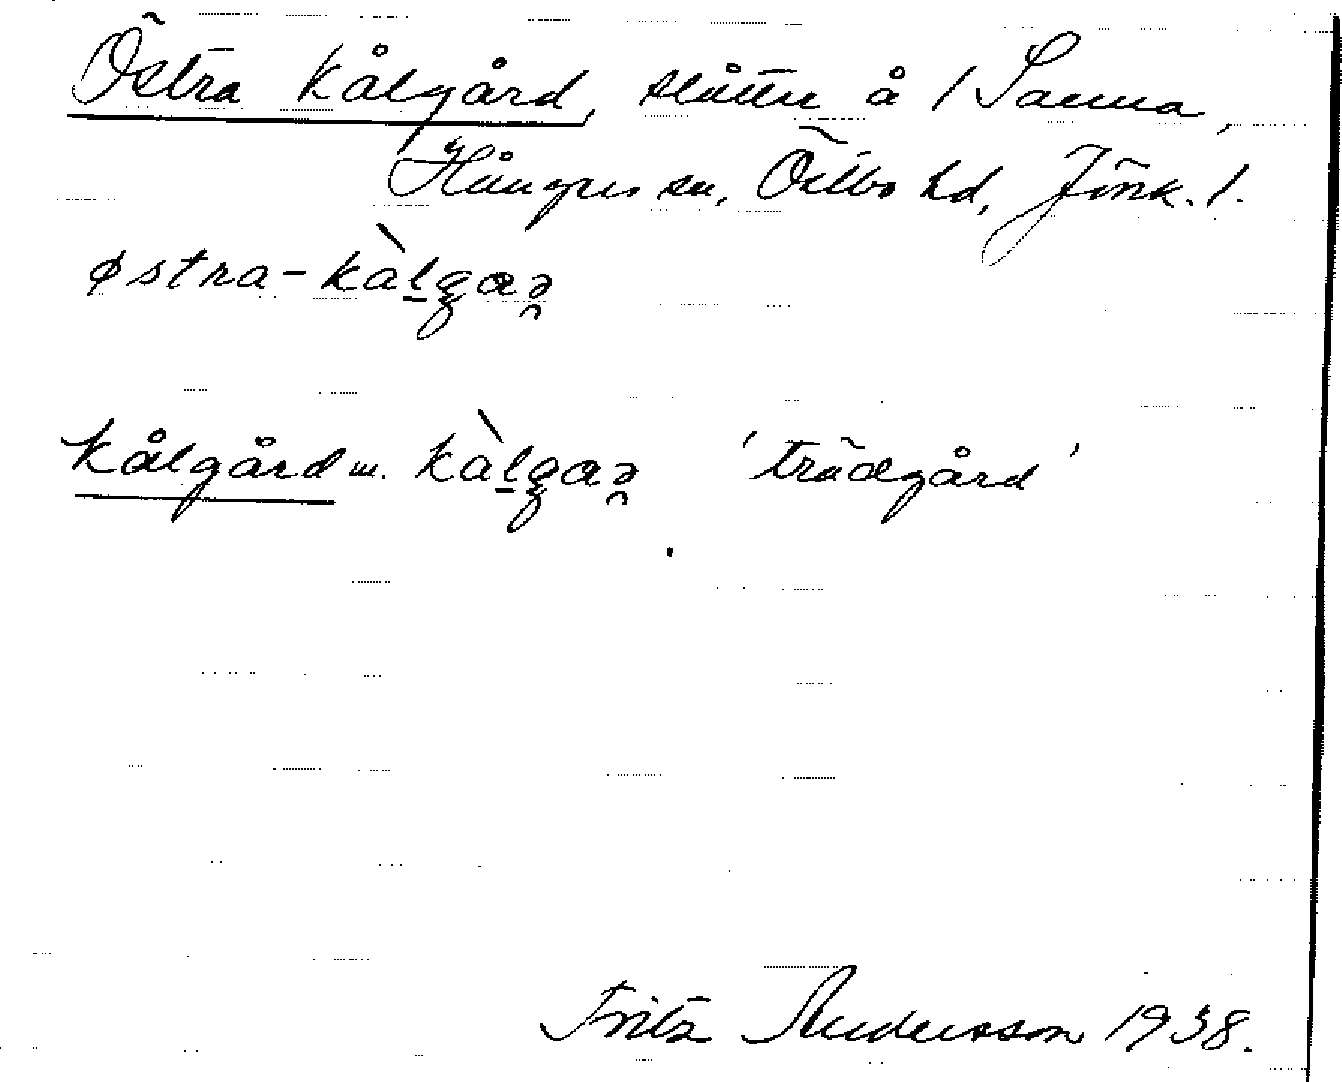 Östra Kålgård, slåtter å / Sanna,
Hångers sn, Östbo hd, Jönk. l.
østra-kàl̠gaə̯
Kålgård m. kàl̠gaə̯ 'trädgård'
Fritz Andersson 1938.